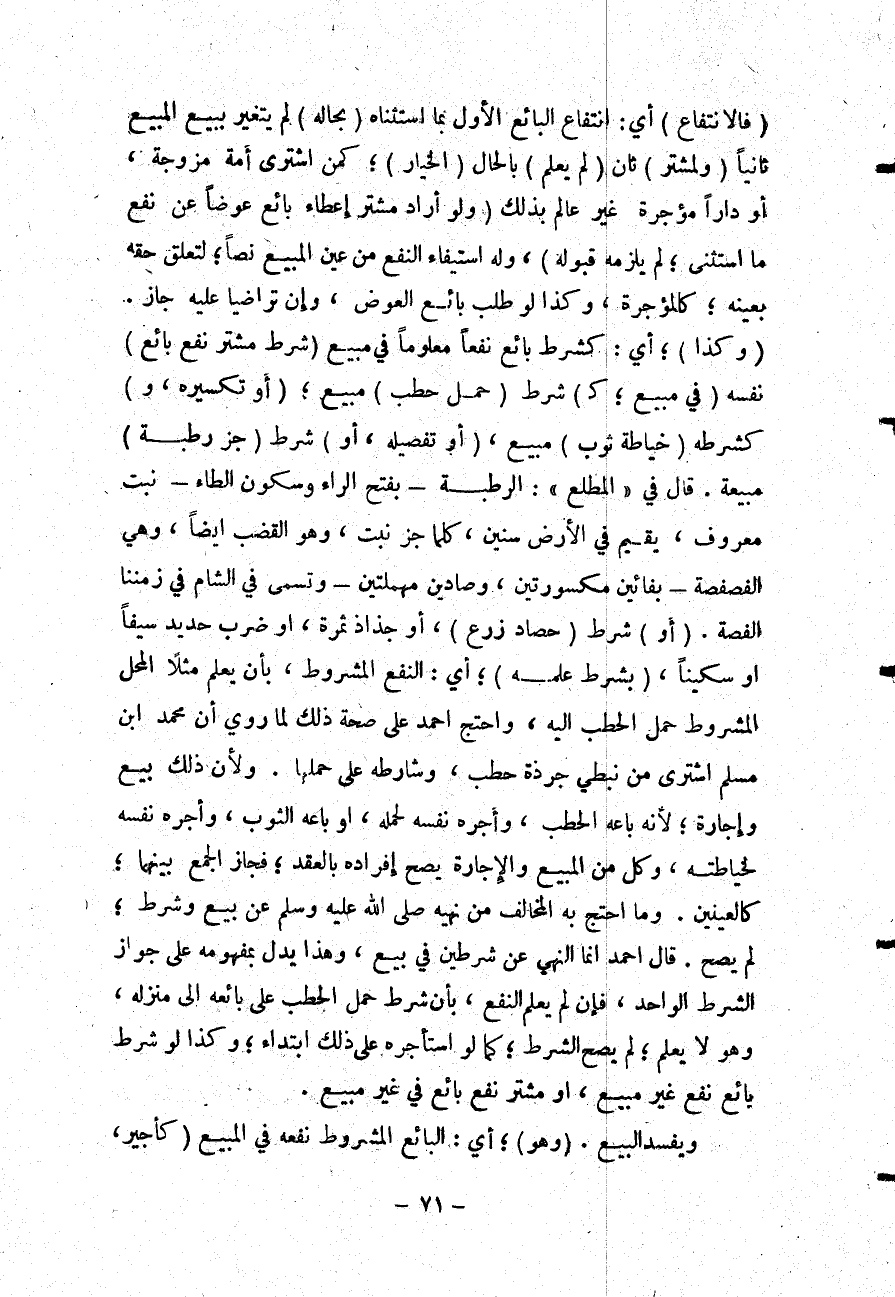 ( فالانتفاع ) أي : انتفاع البائع الأول بما استثناه ( بحاله ) لم يتغير ببيع المبيع
ثانياً ( ولمشتر ) ثان ( لم يعلم ) بالحال ( الخيار ) ؛ كمن اشترى أمة مزوجة ،
أو داراً مؤجرة غير عالم بذلك ( ولو أراد مشتر إعطاء بائع عوضاً عن نفع
ما استثنى ؛ لم يلزمه قبوله ) ، وله استيفاء النفع من عين المبيع نصاً ؛ لتعلق حقه
بعينه ؛ كالمؤجرة ، وكذا لو طلب بائع العوض ، وإن تراضيا عليه جاز .
( وكذا ) ؛ أي : كشرط بائع نفعاً معلوماً في مبيع ( شرط مشتر نفع بائع )
نفسه ( في مبيع ؛ كـ ) شرط ( حمل حطب ) مبيع ؛ ( أو تكسيره ، و )
كشرطه ( خياطة ثوب ) مبيع ، ( أو تفصيله ، أو ) شرط ( جز رطبة )
مبيعة . قال في « المطلع » : الرطبة – بفتح الراء وسكون الطاء – نبت
معروف ، يقيم في الأرض سنين ، كلما جز نبت ، وهو القضب ايضاً ، وهي
الفصفصة – بفائين مكسورتين ، وصادين مهملتين – وتسمى في الشام في زمننا
الفصة . ( أو ) شرط ( حصاد زرع ) ، أو جذاذ ثمرة ، او ضرب حديد سيفاً
او سكيناً ، ( بشرط علمه ) ؛ أي : النفع المشروط ، بأن يعلم مثلًا المحل
المشروط حمل الحطب اليه ، واحتج احمد على صحة ذلك لما روي أن محمد ابن
مسلم اشترى من نبطي جرذة حطب ، وشارطه على حملها . ولأن ذلك بيع
وإجارة ؛ لأنه باعه الحطب ، وأجره نفسه لحمله ، او باعه الثوب ، وأجره نفسه
لخياطته ، وكل من المبيع والإجارة يصح إفراده بالعقد ؛ فجاز الجمع بينهما ؛
كالعينين . وما احتج به المخالف من نهيه صلى الله عليه وسلم عن بيع وشرط ؛
لم يصح . قال احمد انما النهي عن شرطين في بيع ، وهذا يدل بمفهومه على جواز
الشرط الواحد ، فإن لم يعلم النفع ، بأن شرط حمل الحطب على بائعه الى منزله ،
وهو لا يعلم ؛ لم يصح الشرط ؛ كما لو استأجره على ذلك ابتداء ؛ وكذا لو شرط
بائع نفع غير مبيع ، او مشتر نفع بائع في غير مبيع .
ويفسد البيع . ( وهو ) ؛ أي : البائع المشروط نفعه في المبيع ( كأجير ،
– ٧١ –